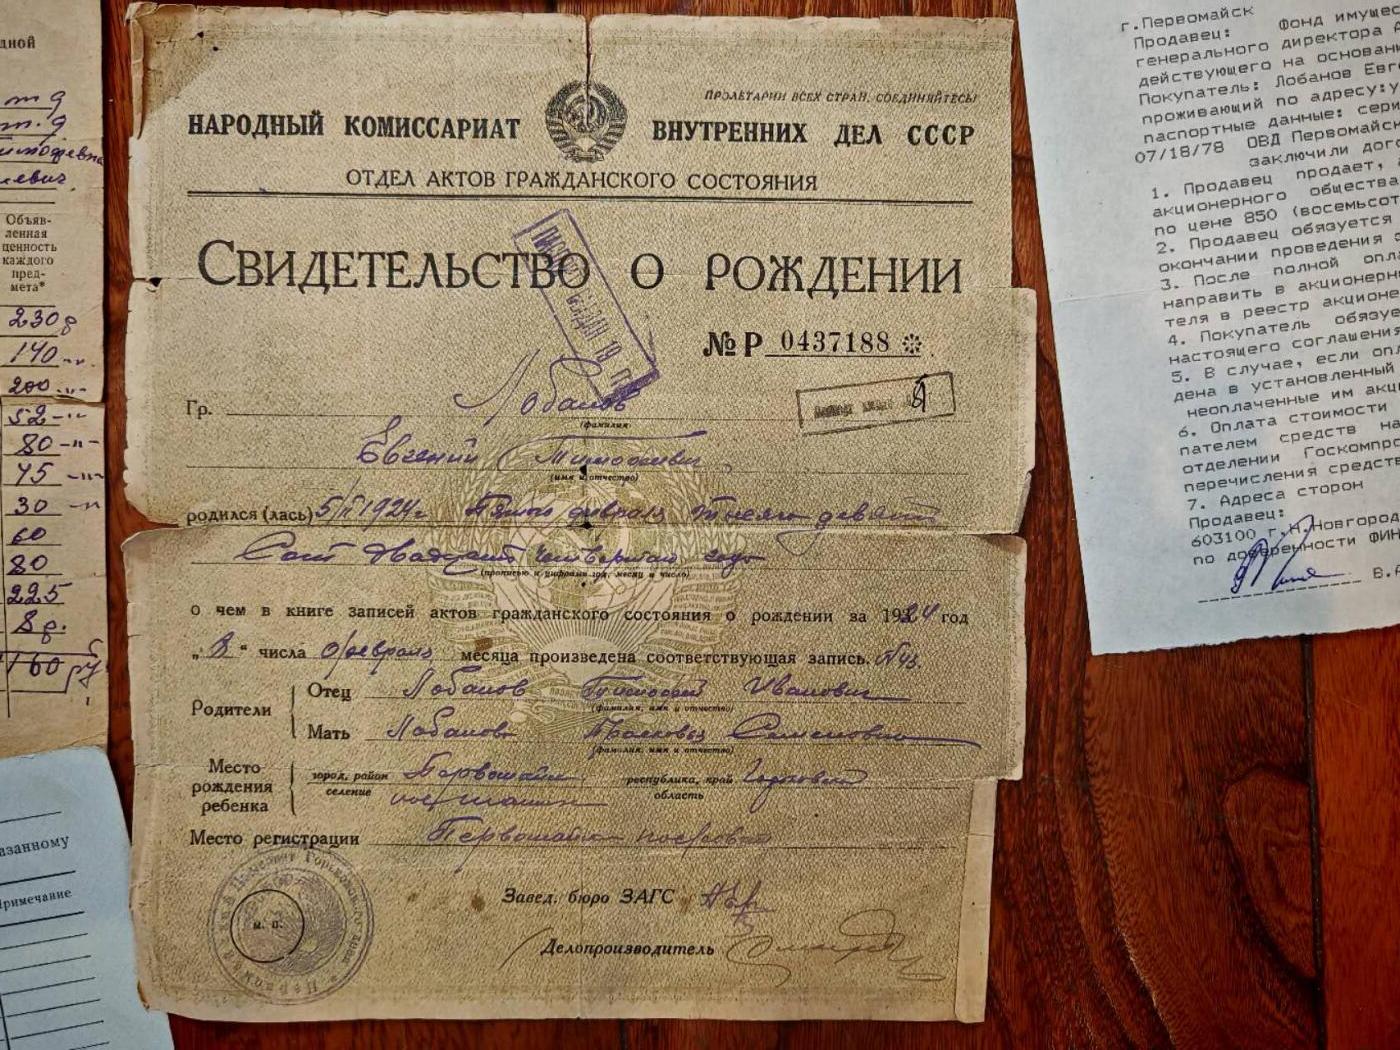 дной
Объяв-
ленная
ценность
каждого
пред-
мета*
230 р
140 -"-
200 -"-
52 -"-
80 -"-
75 -"-
30 -"-
60
80
225
8 р.
1160 руб
азанному
Примечание
ПРОЛЕТАРИИ ВСЕХ СТРАН, СОЕДИНЯЙТЕСЬ!
НАРОДНЫЙ КОМИССАРИАТ ВНУТРЕННИХ ДЕЛ СССР
ОТДЕЛ АКТОВ ГРАЖДАНСКОГО СОСТОЯНИЯ
СВИДЕТЕЛЬСТВО О РОЖДЕНИИ
№ Р 0437188
Гр. Лобанов
(фамилия)
Евгений Тимофеевич
(имя и отчество)
родился (лась) 5/II 1924 г. Пятого февраля тысяча девять
сот двадцать четвертого года
(прописью и цифрами год, месяц и число)
о чем в книге записей актов гражданского состояния о рождении за 1924 год
„8" числа февраля месяца произведена соответствующая запись.
Родители
Отец Лобанов Тимофей Иванович
(фамилия, имя и отчество)
Мать Лобанова Прасковья Семеновна
(фамилия, имя и отчество)
Место рождения ребенка
город, район Первомайск республика, край Горьковская
селение область
Место регистрации Первомайск
Завед. бюро ЗАГС
м. п.
Делопроизводитель
г.Первомайск
Продавец: Фонд имущес
генерального директора
действующего на основани
Покупатель: Лобанов Евг
проживающий по адресу:у
паспортные данные: сери
07/18/78 ОВД Первомайск
заключили дог
1. Продавец продает,
акционерного общества
по цене 850 (восемьсот
2. Продавец обязуется
окончании проведения
3. После полной опла
направить в акционерн
теля в реестр акционе
4. Покупатель обязуе
настоящего соглашения
5. В случае, если опл
дена в установленный
неоплаченные им акци
6. Оплата стоимости
пателем средств на
отделении Госкомпро
перечисления средств
7. Адреса сторон
Продавец:
603100 г.Н.Новгород
по доверенности ФИН
В.А